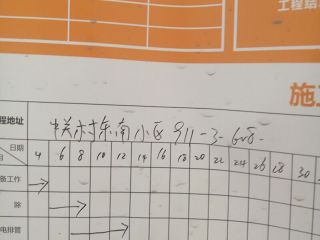 工程结
施
程地址 樱村东南小区 911-3-628-
日期 4 6 8 10 12 14 16 18 20 22 24 26 28 30
目
备工作
除
电排管